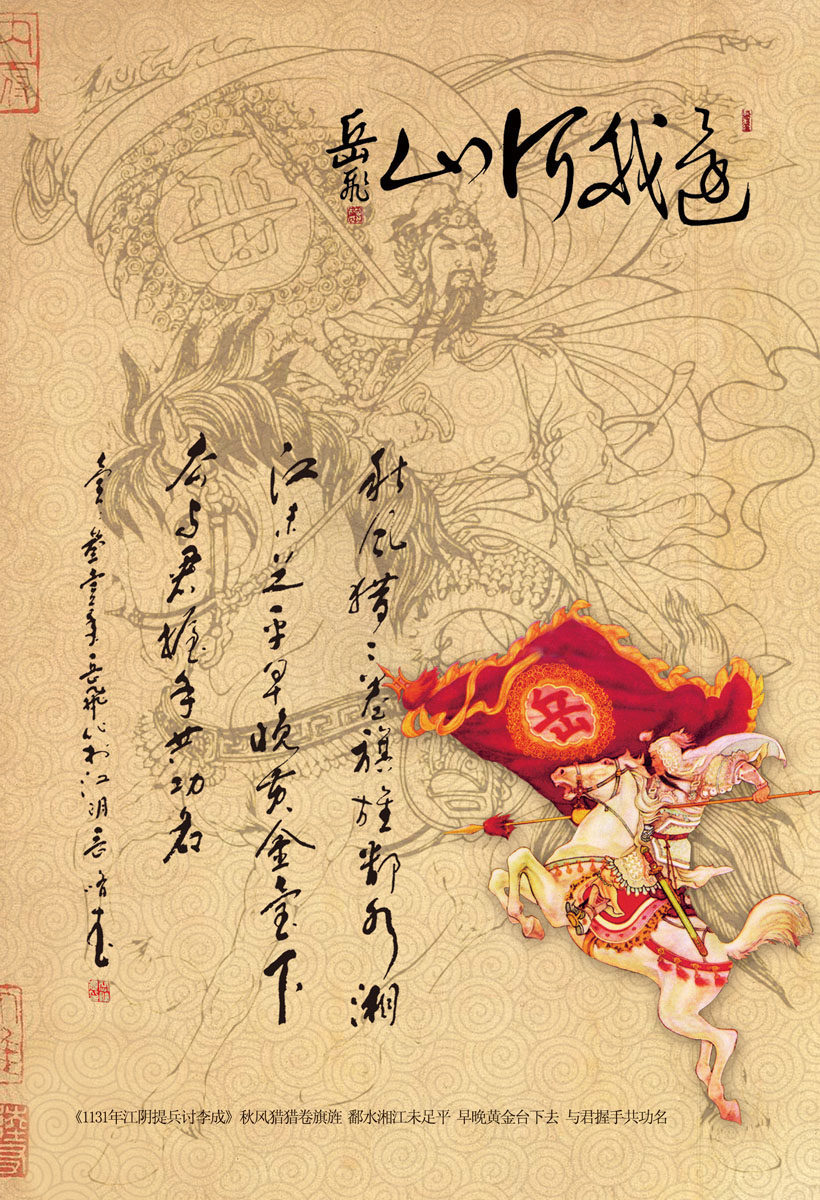 還我河山
岳飛
秋风猎〻卷旗旌鄱水湘
江未足平早晚黄金台下
去与君握手共功名
壹〻叁壹年岳飛
岳
《1131年江阴提兵讨李成》秋风猎猎卷旗旌 鄱水湘江未足平 早晚黄金台下去 与君握手共功名